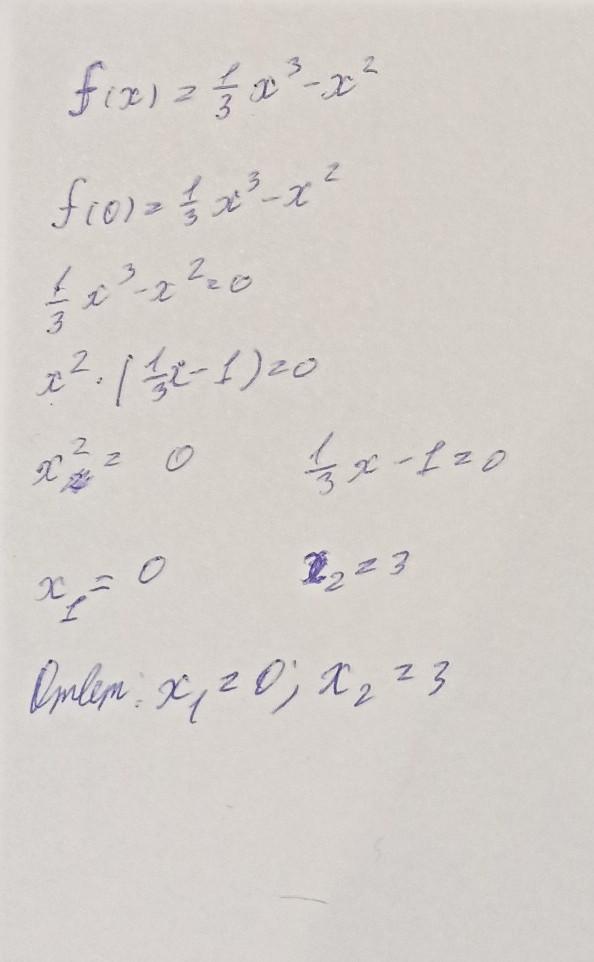 f(x) = 1/3 x³ - x²
f(0) = 1/3 x³ - x²
1/3 x³ - x² = 0
x² · (1/3 x - 1) = 0
x² = 0 1/3 x - 1 = 0
x₁ = 0 x₂ = 3
Ответ: x₁ = 0; x₂ = 3